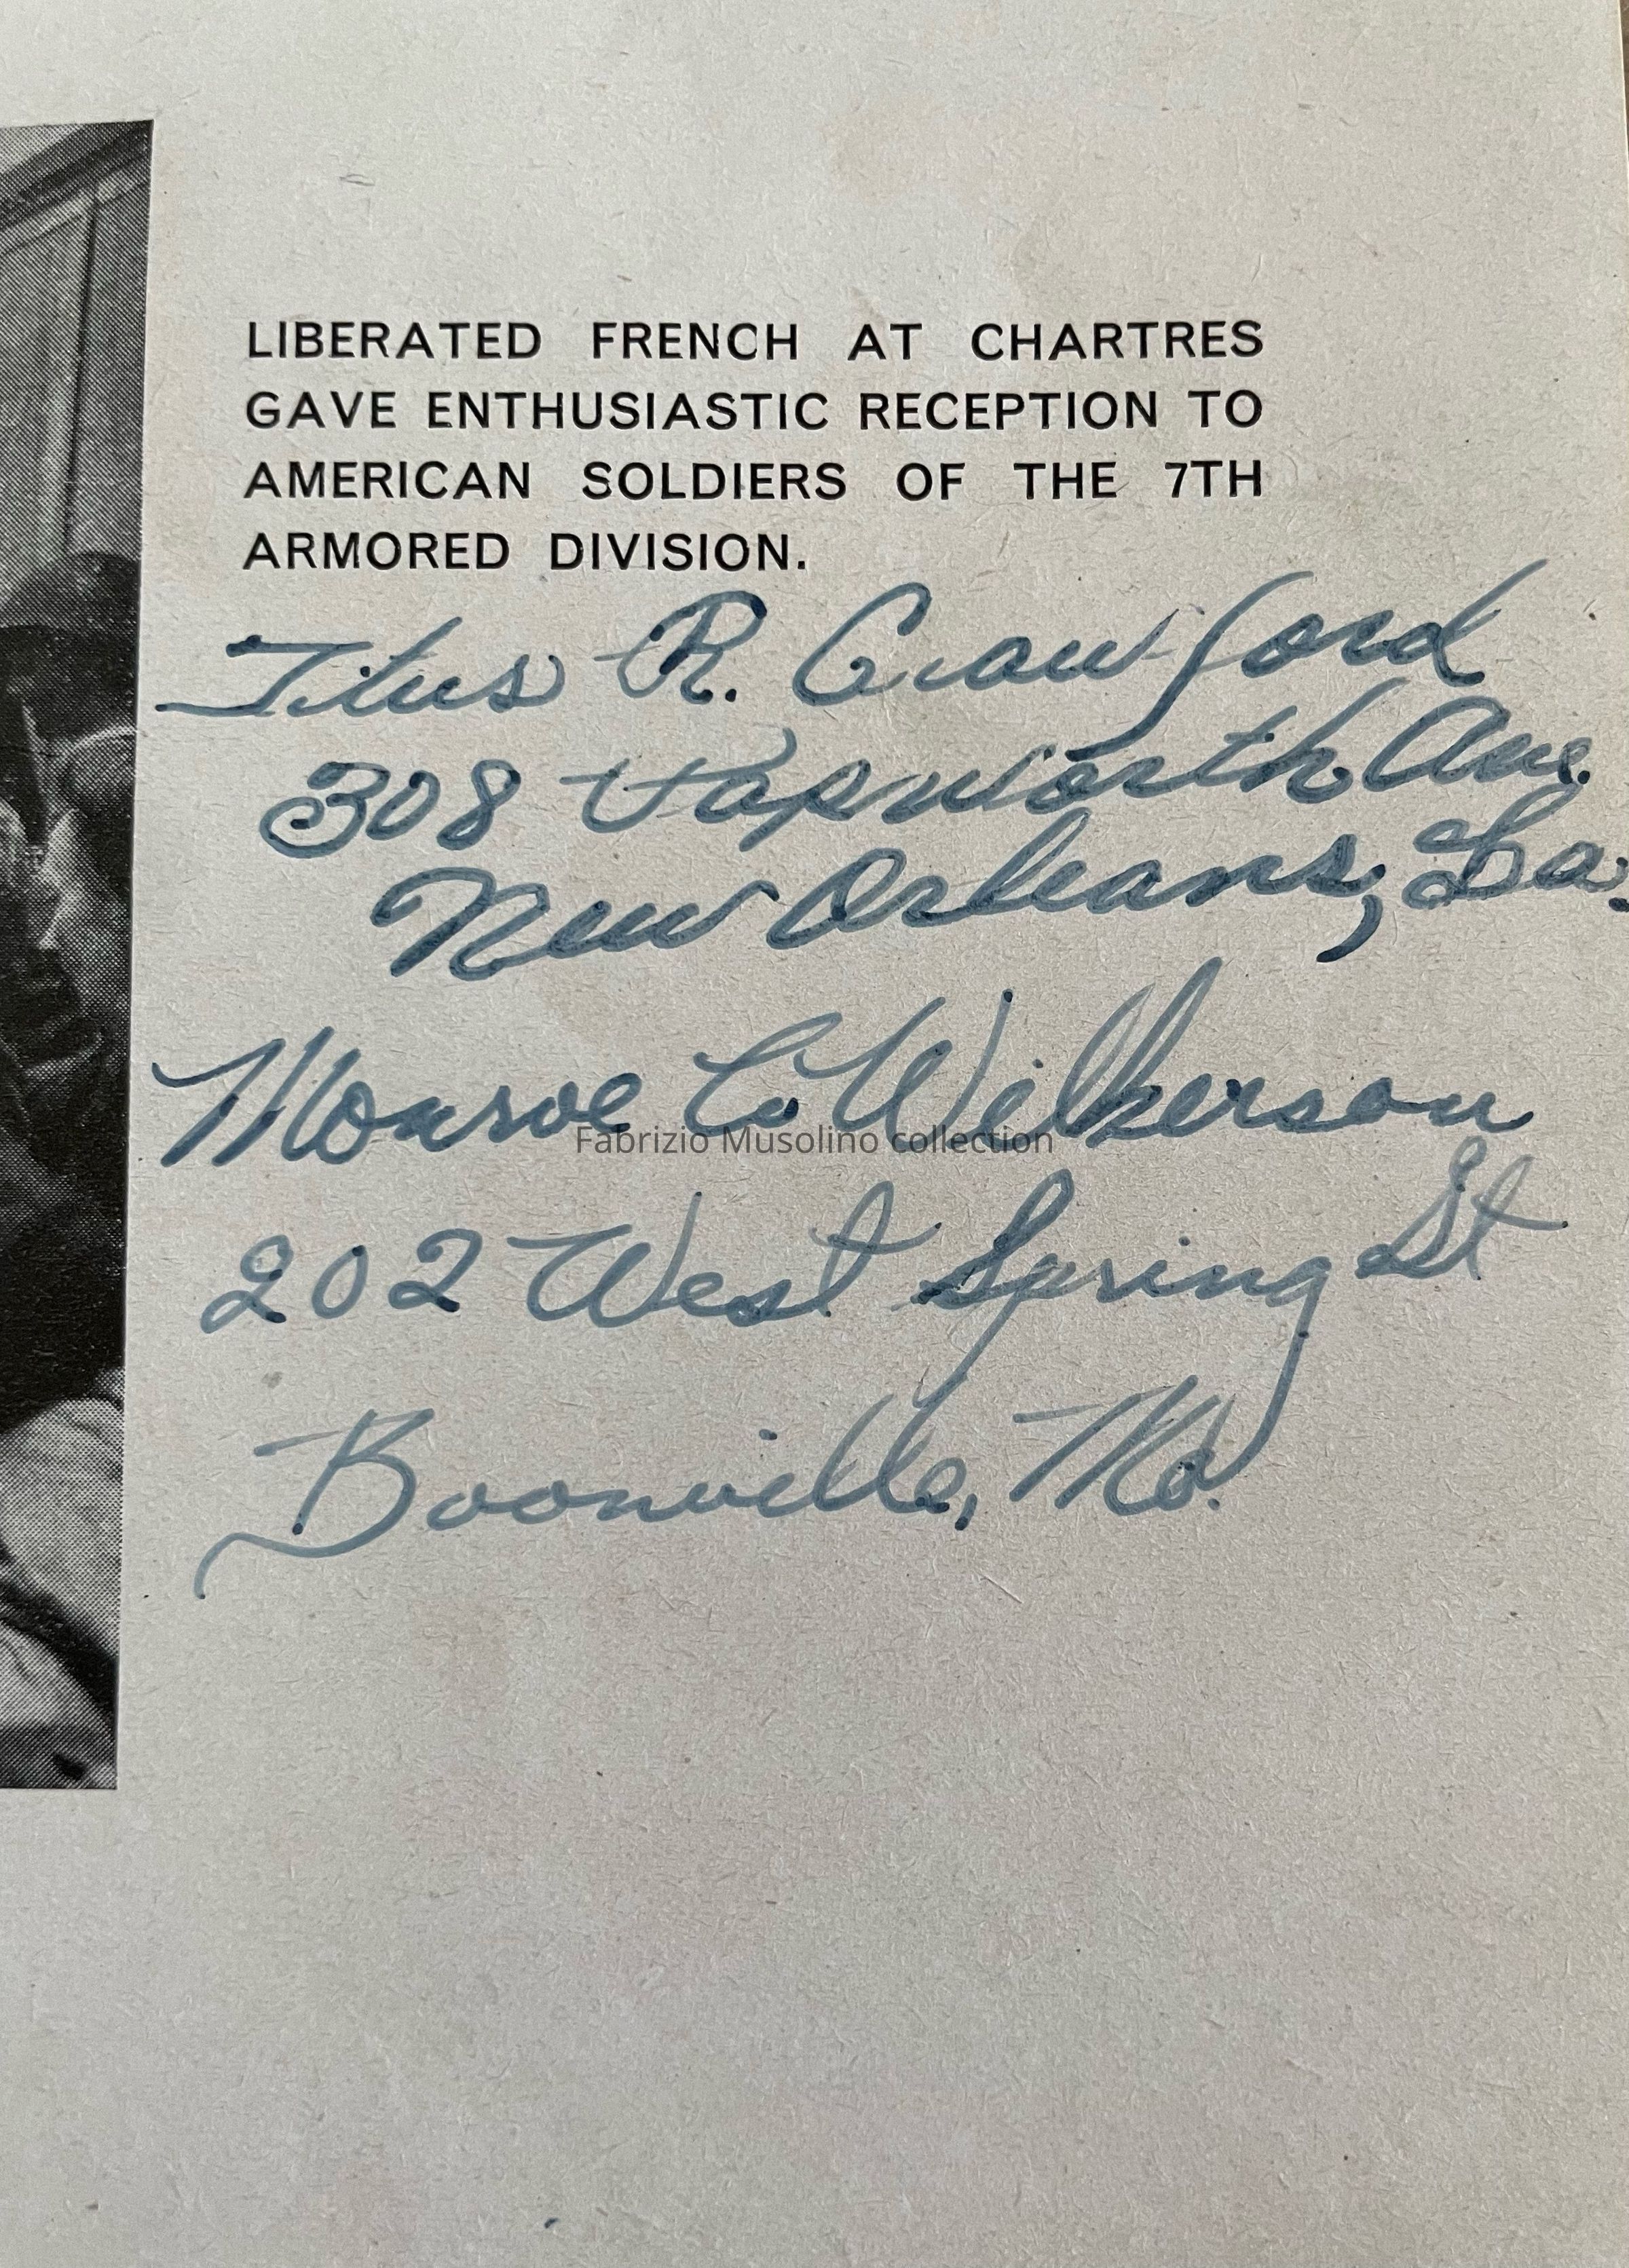 LIBERATED FRENCH AT CHARTRES
GAVE ENTHUSIASTIC RECEPTION TO
AMERICAN SOLDIERS OF THE 7TH
ARMORED DIVISION.
Titus R. Crawford
308 Papworth Ave.
New Orleans, La.
Monroe Wilkerson
Fabrizio Musolino collection
202 West Spring St
Boonville, Mo.